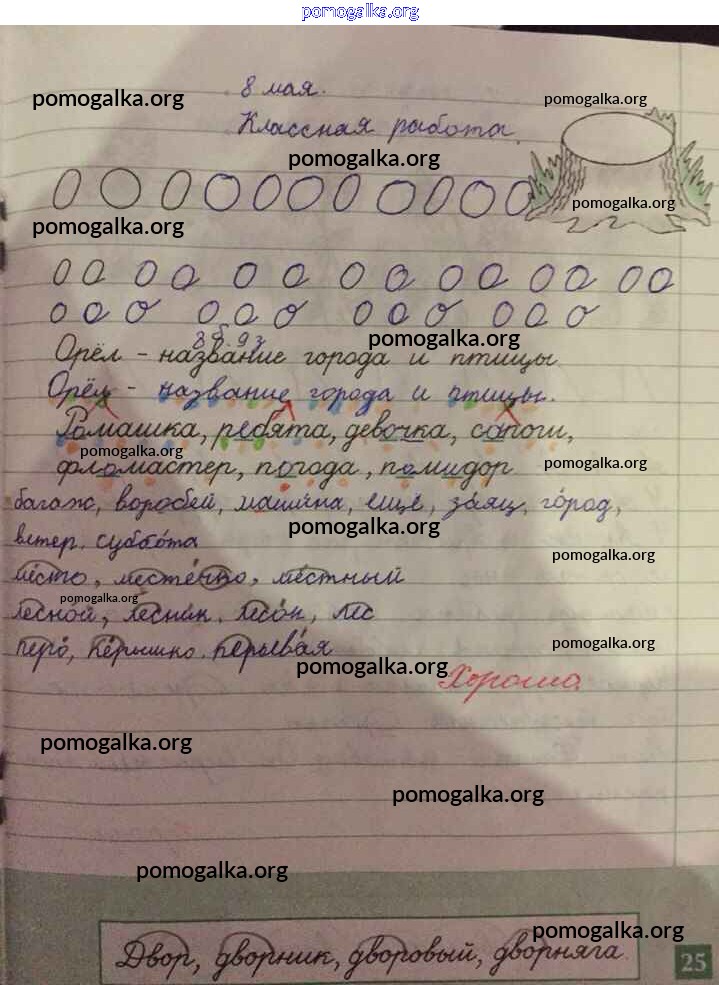 pomogalka.org
8 мая.
pomogalka.org pomogalka.org
Классная работа.
pomogalka.org
О О О О О О О О О О О
pomogalka.org
pomogalka.org
О о О о О о О о О о О о О о
о о о о о о о о о о о о
8б. 9з
pomogalka.org
Орёл – название города и птицы
Орёл – название города и птицы.
Ромашка, ребята, девочка, сапоги,
pomogalka.org
фломастер, погода, помидор
pomogalka.org
багаж, воробей, машина, ещё, заяц, город,
pomogalka.org
ветер, суббота
pomogalka.org
место, местечко, местный
pomogalka.org
лесной, лесник, лесок, лес
перо, пёрышко, перьевая
pomogalka.org
pomogalka.org
Хорошо.
pomogalka.org
pomogalka.org
pomogalka.org
pomogalka.org
Двор, дворник, дворовый, дворняга.
25